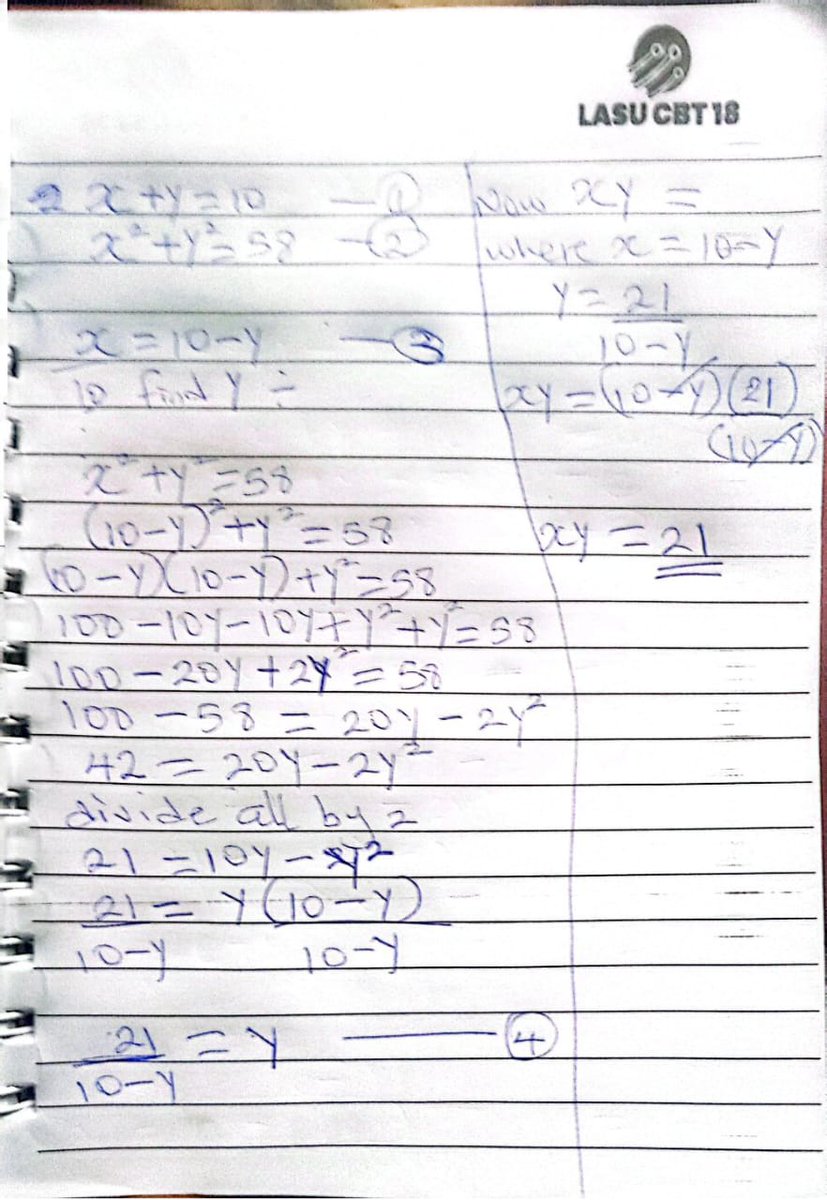 LASU CBT 18
2 x + y = 10 — ①
x² + y² = 58 — ②
x = 10 - y — ③
to find y ÷
x² + y² = 58
(10 - y)² + y² = 58
(10 - y)(10 - y) + y² = 58
100 - 10y - 10y + y² + y² = 58
100 - 20y + 2y² = 58
100 - 58 = 20y - 2y²
42 = 20y - 2y²
divide all by 2
21 = 10y - y²
21 = y (10 - y)
10 - y 10 - y
21 = y — ④
10 - y
Now xy =
where x = 10 - y
y = 21
10 - y
xy = (10 - y) (21)
(10 - y)
xy = 21